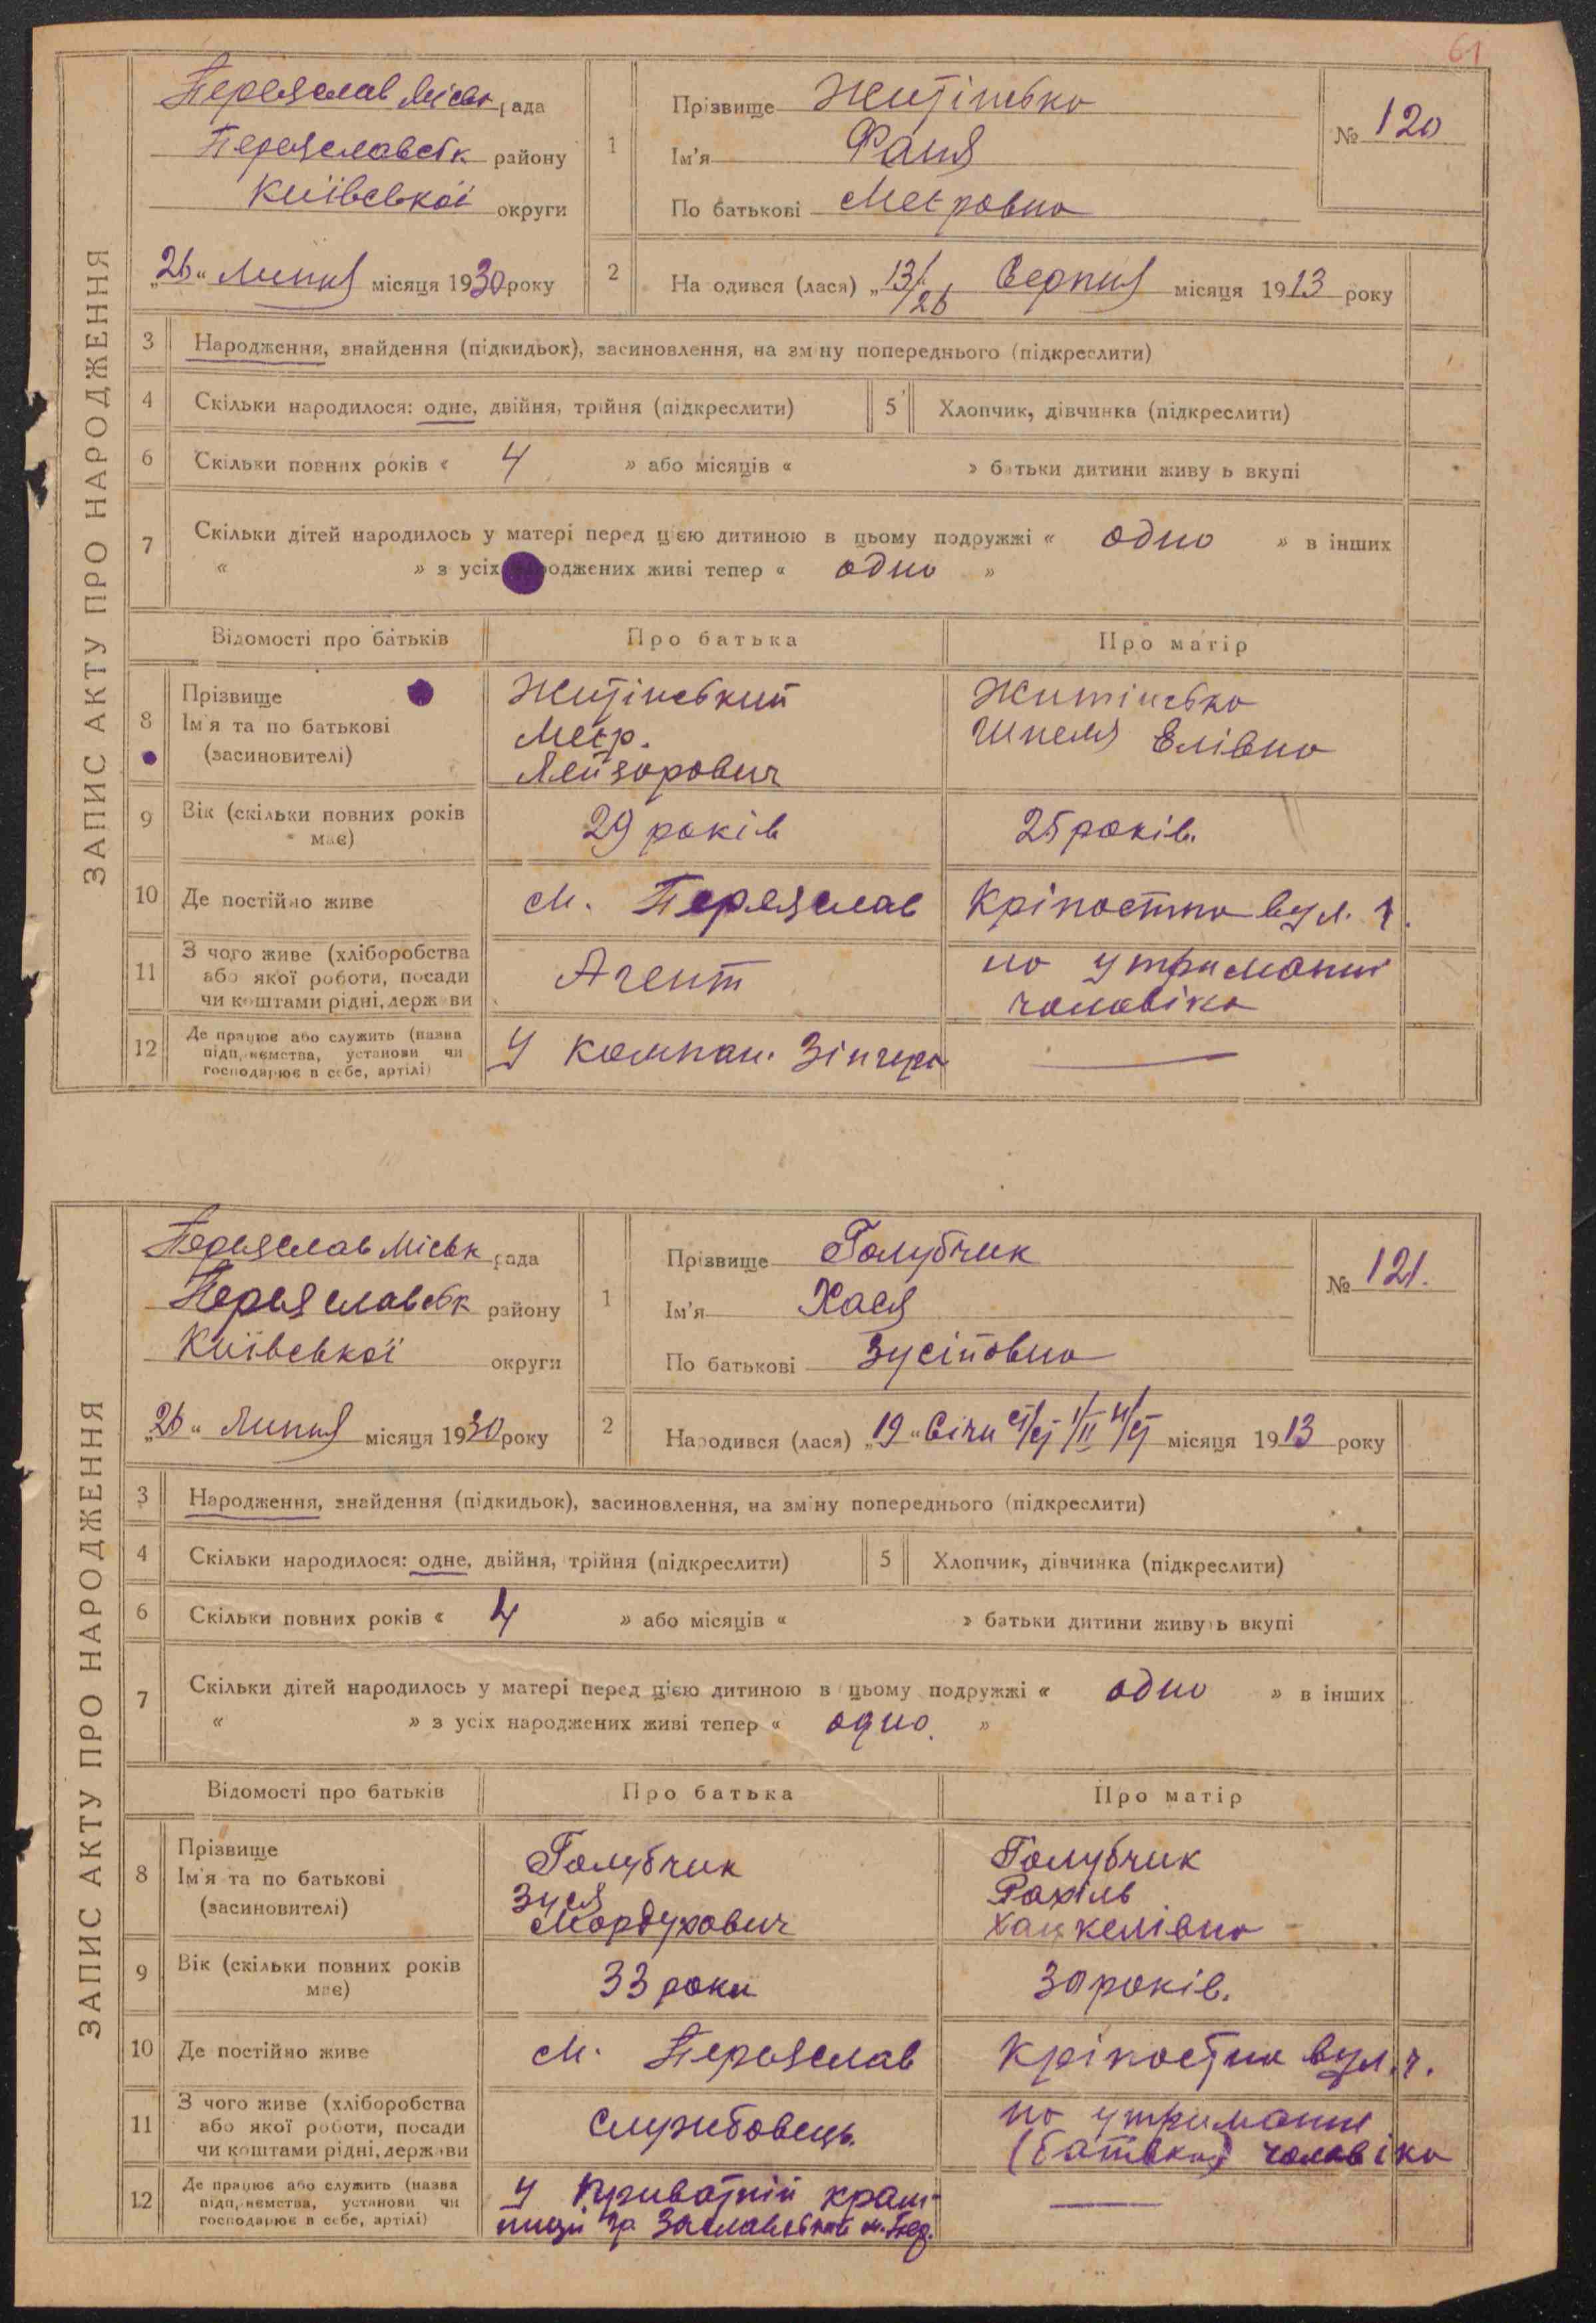 61
ЗАПИС АКТУ ПРО НАРОДЖЕННЯ
Переяслав Місько рада
Переяславськ району
Київської округи
„26“ Липня місяця 1930 року
1
Прізвище Житінська
Ім'я Фаня
По батькові Меєровна
№ 120
2
Народився (лася) „13/26 Серпня місяця 1913 року
3 Народження, знайдення (підкидьок), засиновлення, на зміну попереднього (підкреслити)
4 Скільки народилося: одне, двійня, трійня (підкреслити)
5 Хлопчик, дівчинка (підкреслити)
6 Скільки повних років « 4 » або місяців « » батьки дитини живуть вкупі
7 Скільки дітей народилось у матері перед цією дитиною в цьому подружжі « одно » в інших
« » з усіх народжених живі тепер « одно »
Відомості про батьків Про батька Про матір
8 Прізвище Ім'я та по батькові (засновителі)
Житінський
Меєр.
Лейзорович
Житінська
Шпеля Елівна
9 Вік (скільки повних років має) 29 років 25 років.
10 Де постійно живе м. Переяслав Кріпостна вул. ч.
11 З чого живе (хліборобства
або якої роботи, посади
чи коштами рідні, держави
Агент
на утриманні
чоловіка
12 Де працює або служить (назва
підприємства, установи чи
господарює в себе, артілі)
У компан. Зінгера
ЗАПИС АКТУ ПРО НАРОДЖЕННЯ
Переяслав Міськ рада
Переяславськ району
Київської округи
„26“ Липня місяця 1930 року
1
Прізвище Голубчик
Ім'я Хася
По батькові Зусійовна
№ 121.
2
Народився (лася) „19“ Січн місяця 1913 року
3 Народження, знайдення (підкидьок), засиновлення, на зміну попереднього (підкреслити)
4 Скільки народилося: одне, двійня, трійня (підкреслити)
5 Хлопчик, дівчинка (підкреслити)
6 Скільки повних років « 4 » або місяців « » батьки дитини живуть вкупі
7 Скільки дітей народилось у матері перед цією дитиною в цьому подружжі « одно » в інших
« » з усіх народжених живі тепер « одно. »
Відомості про батьків Про батька Про матір
8 Прізвище
Ім'я та по батькові
(засиновителі)
Голубчик
Зуся
Мордухович
Голубчик
Рахіль
Хацкелівна
9 Вік (скільки повних років має) 33 роки 30 років.
10 Де постійно живе м. Переяслав Кріпостна вул. ч.
11 З чого живе (хліборобства
або якої роботи, посади
чи коштами рідні, держави
Службовець.
на утриманні
(батька) чоловіка
12 Де працює або служить (назва
підприємства, установи чи
господарює в себе, артілі)
У приватній крам-
ниці Заславської м. Пер.